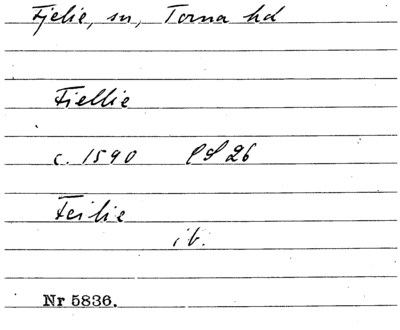 Fjelie, sn, Torna hd
Fiellie
c. 1590 LS 26
Feilie
ib.
Nr 5836.